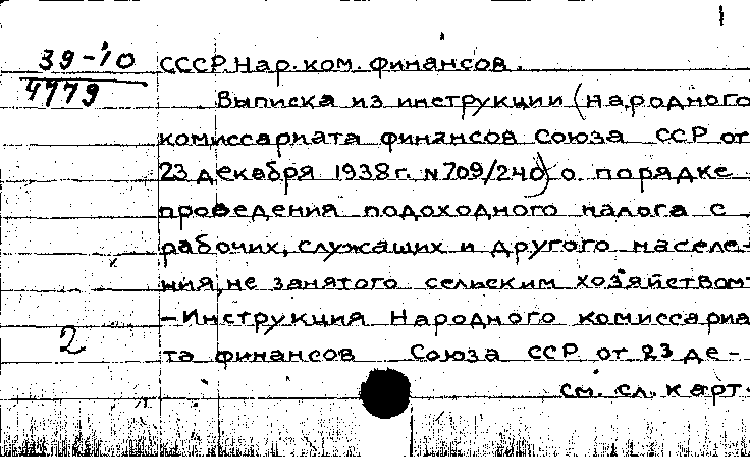 39-10
4779
СССР. Нар. ком. финансов.
Выписка из инструкции (народного
комиссариата финансов Союза ССР от
23 декабря 1938 г. N 709/240) о порядке
проведения подоходного налога с
рабочих, служащих и другого населе-
ния, не занятого сельским хозяйством.
-Инструкция Народного комиссариа
та финансов Союза ССР от 23 де-
см. сл. карт.
2